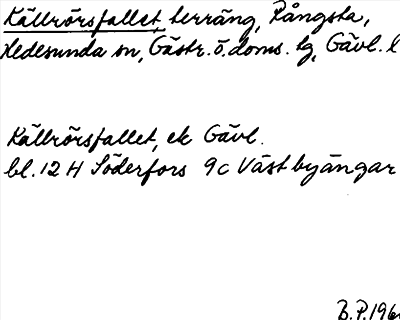 Källrörsfallet, terräng, Rångsta,
Hedesunda sn, Gästr. ö. doms. tg, Gävl. l
Källrörsfallet, ek Gävl.
bl. 12 H Söderfors 9c Västbyängar
B.P. 196